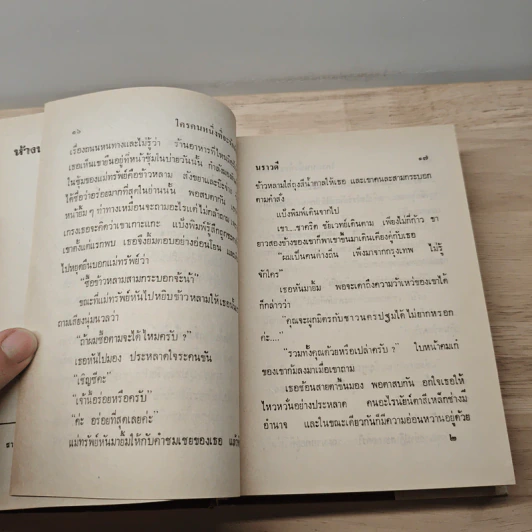 ๑๖
ใครคนหนึ่งที่
เรื่องถนนหนทางและไม่รู้ว่า ร้านอาหารที่ไหนมี
เธอเห็นเขายืนอยู่ที่หน้าซุ้มในบ่ายวันนั้น กำลัง
ในซุ้มของแม่ทรัพย์คือข้าวหลาม สังขยาและ
ได้ชื่อว่าอร่อยมากที่สุดในย่านนั้น พอสบตากัน
หน้ายิ้ม ๆ ท่าทางเหมือนจะถามอะไรแต่
เกรงเธอจะคิดว่าเขาเกาะแกะ แป้งพิมพ์รู้สึกถูก
เขาตั้งแต่แรกพบ เธอจึงยิ้มตอบอย่างอ่อนโยน
ไปหยุดยืนบอกแม่ทรัพย์ว่า
“ซื้อข้าวหลามสามกระบอกจ้ะน้า”
ขณะที่แม่ทรัพย์หันไปหยิบข้าวหลามให้เธอ
ถามเสียงนุ่มนวลว่า
“ถ้าผมซื้อตามจะได้ไหมครับ ?”
เธอหันไปมอง ประหลาดใจระคนขัน
“เชิญซีคะ”
“เจ้านี้อร่อยหรือครับ”
“ค่ะ อร่อยที่สุดเลยค่ะ”
แม่ทรัพย์หันมายิ้มให้กับคำชมเชยของเธอ
นราวดี
๑๗
ข้าวหลามใส่ถุงสีน้ำตาลให้เธอ และเขาคนละสามกระบอก
ตามคำสั่ง
แป้งพิมพ์เดินจากไป
เขา...ชาคริต ชัยเวทย์เดินตาม เพียงไม่กี่ก้าว ขา
ยาวสองข้างของเขาก็พาเขาขึ้นมาเดินเคียงคู่กับเธอ
“ผมเป็นคนต่างถิ่น เพิ่งมาจากกรุงเทพ ไม่รู้
จักใคร”
เธอหันมายิ้ม พอจะเดาถึงความว้าเหว่ของเขาได้
ก็กล่าวว่า
“คุณจะผูกมิตรกับชาวนครปฐมได้ไม่ยากหรอก
ค่ะ....”
“รวมทั้งคุณด้วยหรือเปล่าครับ ?” ใบหน้าคมเก๋
ของเขาก้มลงมาเมื่อเขาถาม
เธอช้อนสายตาขึ้นมอง พอตาสบกัน อกใจเธอให้
ไหวหวั่นอย่างประหลาด คนอะไรนัยน์ตาสีเหล็กช่างมี
อำนาจ และในขณะเดียวกันก็มีความอ่อนหวานอยู่ด้วย
๒